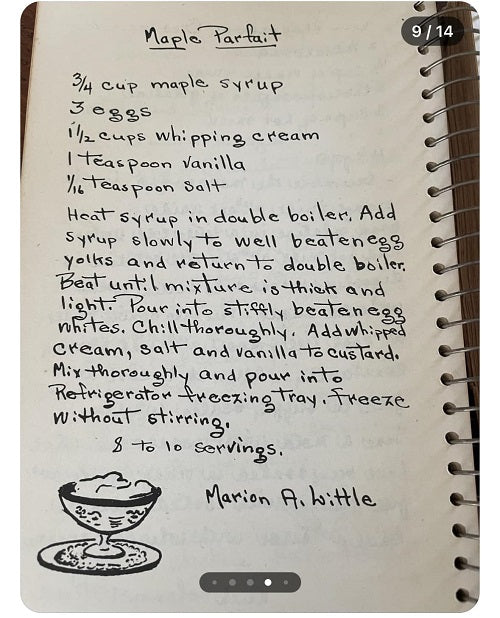 9 / 14
Maple Parfait
3/4 cup maple syrup
3 eggs
1 1/2 cups whipping cream
1 teaspoon vanilla
1/16 teaspoon salt
Heat syrup in double boiler. Add
syrup slowly to well beaten egg
yolks and return to double boiler.
Beat until mixture is thick and
light. Pour into stiffly beaten egg
whites. Chill thoroughly. Add whipped
cream, salt and vanilla to custard.
Mix thoroughly and pour into
Refrigerator freezing tray. Freeze
without stirring.
8 to 10 servings.
Marion A. Little